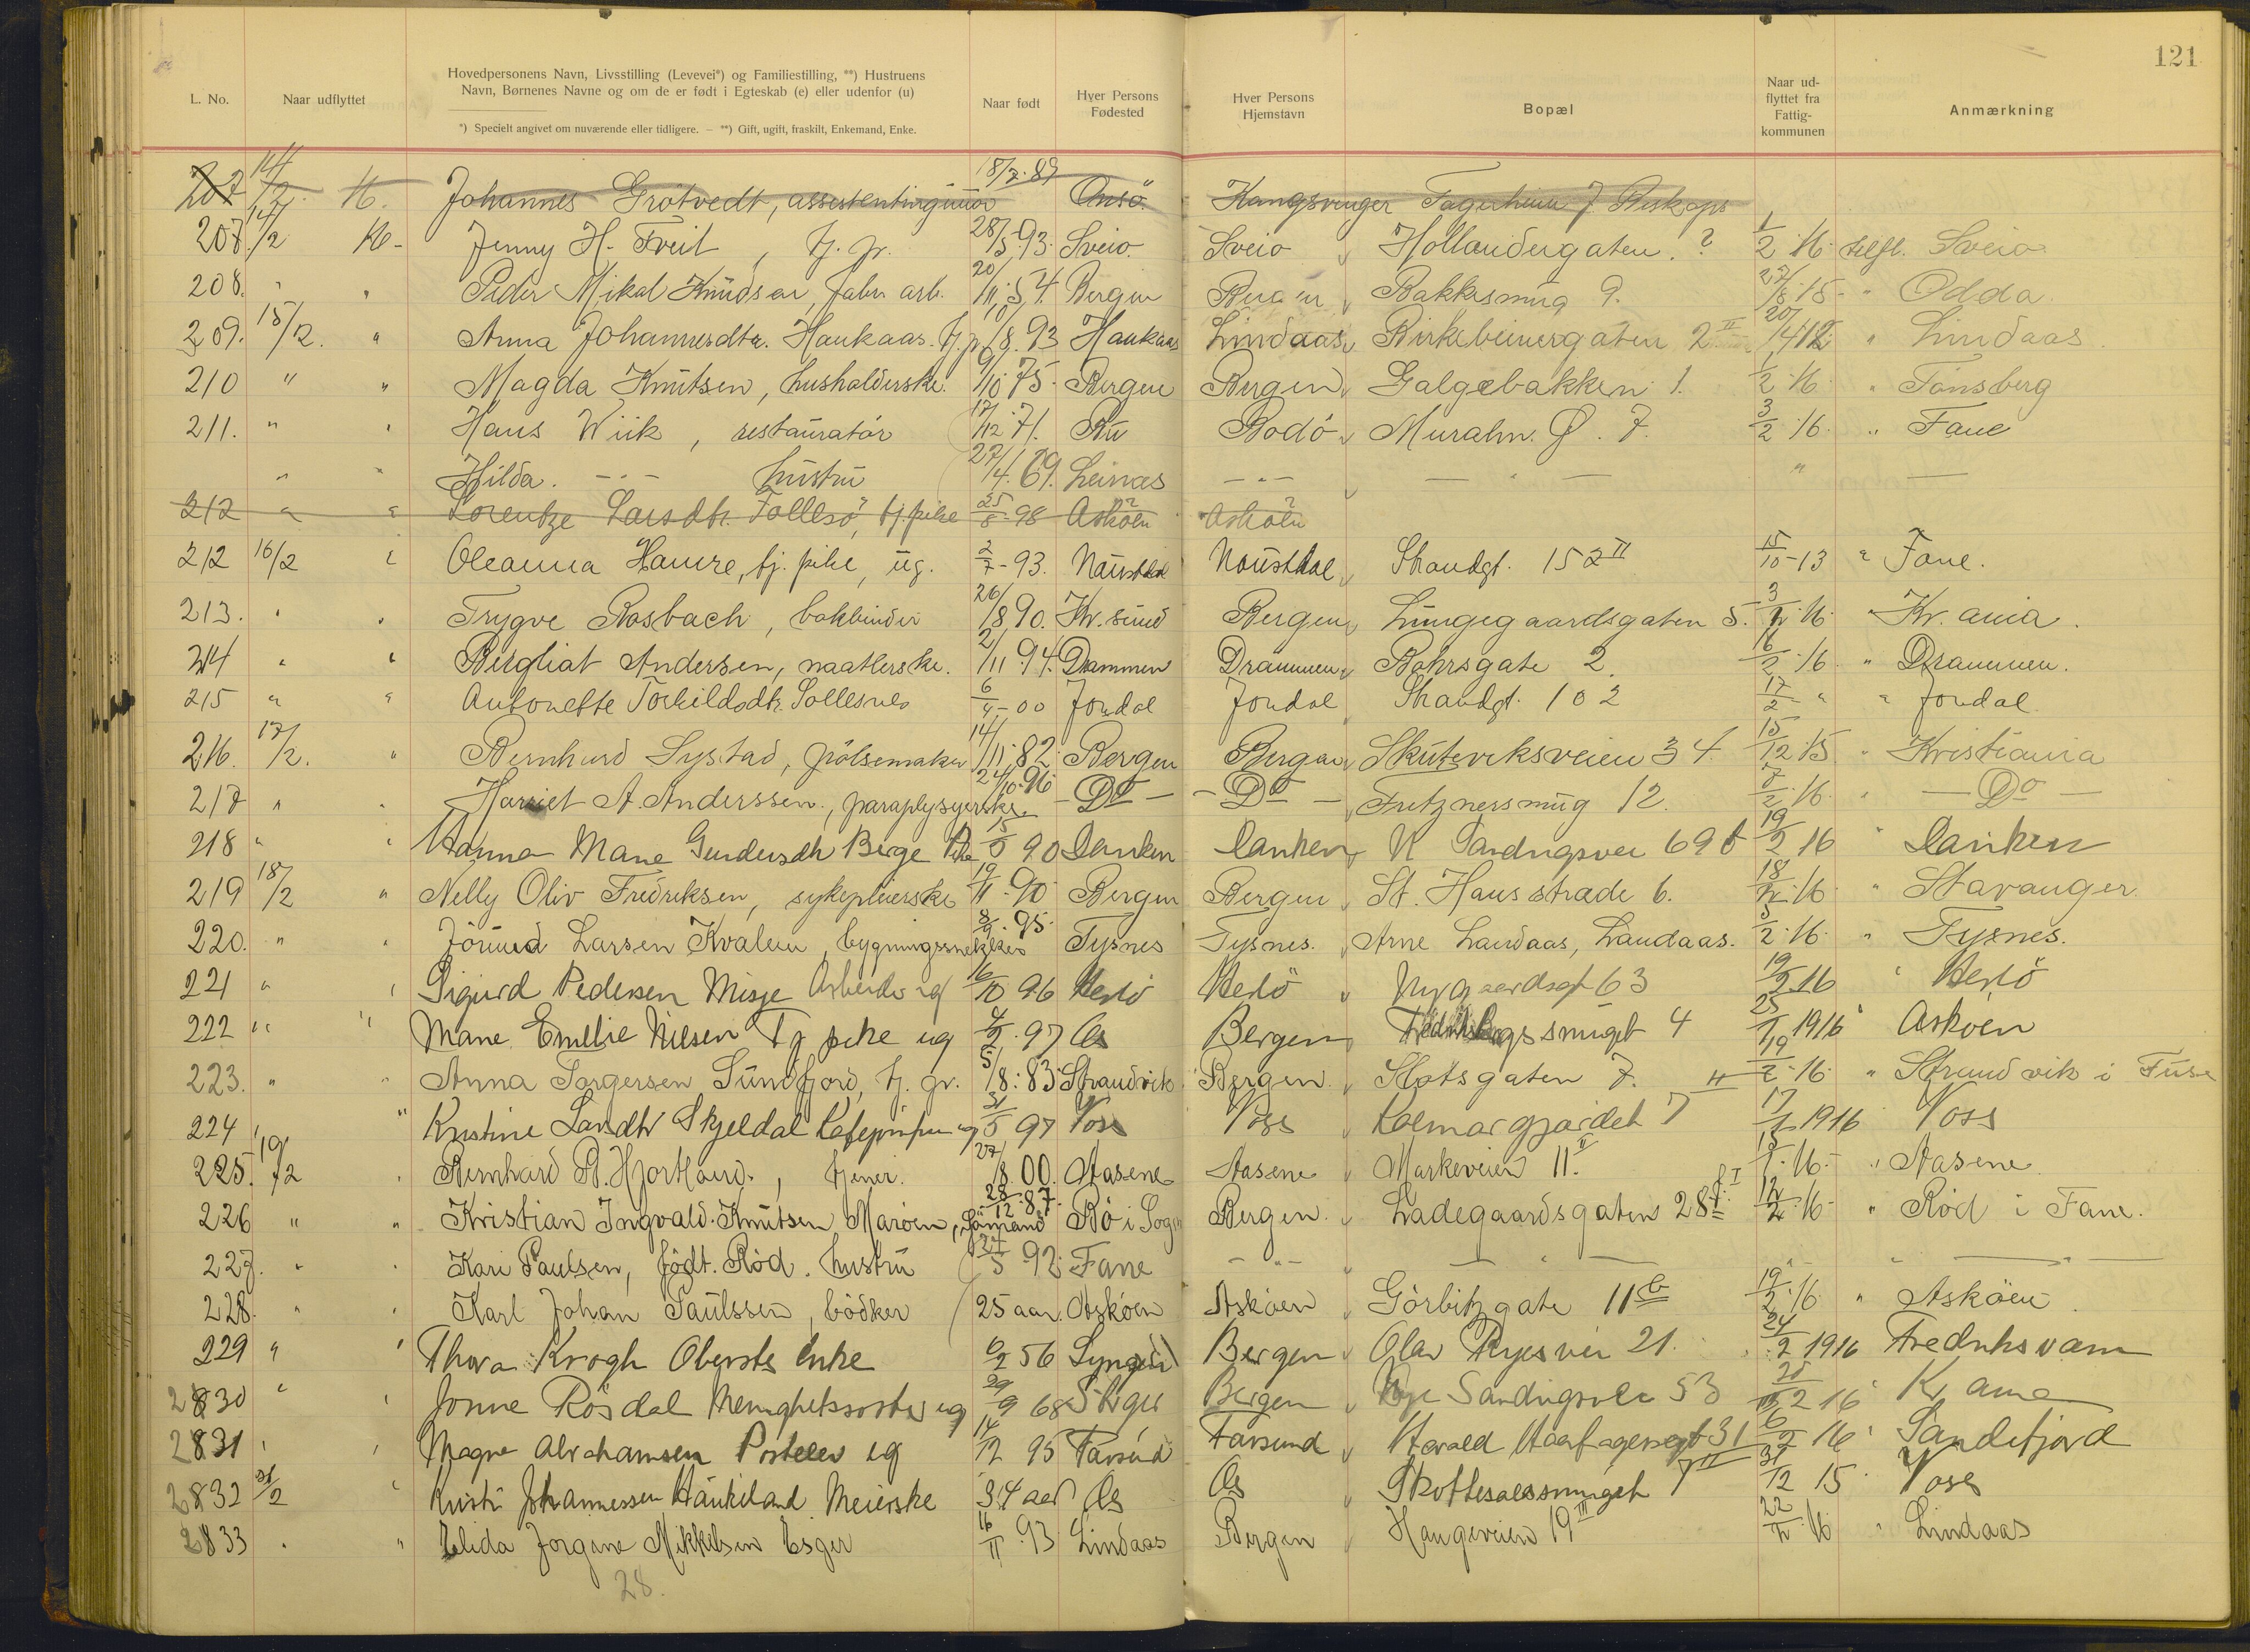 121
L. No. Naar udflyttet Hovedpersonens Navn, Livsstilling (Levevei*) og Familiestilling, **) Hustruens Navn, Børnenes Navne og om de er født i Egteskab (e) eller udenfor (u) Naar født Hver Persons Fødested Hver Persons Hjemstavn Bopæl Naar udflyttet fra Fattigkommunen Anmærkning
*) Specielt angivet om nuværende eller tidligere. — **) Gift, ugift, fraskilt, Enkemand, Enke.
207 14/2 16. Johannes Grötvedt, 18/7. 89 Onsö. Kongsvinger
207. 14/2 16- Jenny H. Tveit, tj. pi. 28/5 93. Sveio. Sveio Hollendergaten. ? 1/2 16. Sveio
208. " " Peder Mikal Knudsen, fabr. arb. 20/11. 54. Bergen Bergen Bakkesmug 9. 27/8 15 - " Odda.
209. 15/2. " Anna Johannesdtr. Haukaas. tj. p. 10/8. 93 Haukaas Lindaas Birkebeinergaten 2 II 20/4 12 " Lindaas.
210 " " Magda Knutsen, husholderske. 9/10. 75. Bergen Bergen Galgebakken 1. 1/2 16. " Tönsberg
211. " " Hans Wiik, restauratör 17/12 71. Bodö Muralm. Ø. 7. 3/2 16. " Fane
" " Hilda. -"- hustru 27/4. 69. Leinæs -"- - " - " -
212 " " Lorentze Larsdtr. Follesö?, tj. pike 25/8 - 98 Asköen Asköen
212 16/2 " Oleanna Hamre, tj. pike, ug. 2/7 - 93. Naustdal Naustdal Strandgt. 152 II 15/10 - 13 " Fane.
213. " " Trygve Rosbach, bokbinder 26/8 90. Kr. sund Bergen Lungegaardsgaten 5. 3/2 16. " Kr. ania.
214 " " Bergliot Andersen, naatlerske. 2/11 94. Drammen Drammen. Bøhrsgate 2. 16/2 16. " Drammen.
215 " " Antonette Torkildsdtr. Sollesnes 6/4 - 00 Jondal Jondal Strandgt. 102 17/2 - " " Jondal.
216. 17/2. " Bernhard Systad, pölsemaker 14/11. 82. Bergen Bergen Skuteviksveien 34. 15/12 15 " Kristiania
217 " " Harriet A. Anderssen, paraplysyerske. 24/10. 96 - Do - - Do - Fritznersmug 12. 7/2. 16. " - Do -
218 " " Hanna Marie Gundersdtr Berge Pike 15/5 90 Danken K Sandvigsvei 69 b 19/2 16 "
219 18/2 " Nelly Oliv Fredriksen, sykepleierske 19/11 - 90 Bergen Bergen St. Hans stræde 6. 18/2 16. " Stavanger.
220. " " Jörund Larsen Kvalem, bygningssnekker 8/9. 95. Tysnes Tysnes. Arne Landaas, Landaas. 5/2. 16. " Tysnes.
221 " " Sigurd Pedersen Misje Arbeider ug 16/10 96 Herlö Herlö Nygaardsgt 63 19/2 16 " Herlö
222 " " Marie Emilie Nilsen Tj pike ug 4/2. 97 Os Bergen smuget 4 25/1 1916 " Asköen
223. " " Anna Torgersen Sundfjord, tj. pi. 5/8. 83. Strandvik Bergen. Slotsgaten 7. II 19/2. 16. " Strandvik i Fuse
224 " " Kristine Larsdtr Skjeldal Kafepike ug 31/5 97 Voss Voss Kalmargjærdet 7 17/1 1916 Voss
225. 19/2 " Bernhard B. Hjortland, tjener. 27/8. 00. Aasene Aasene Markeveien 11. II 15/1. 16. - " Aasene
226 " " Kristian Ingvald Knutsen Maroen, Sömand 28/12. 87. Bö i Sogn Bergen. Ladegaardsgaten 28 12/2 16 - " Röd i Fane.
227. " " Kari Paulsen, födt Röd. hustru 27/5 92. Fane -"- - " - " - " -
228. " " Karl Johan Paulssen, bödker 25 aar. Asköen Asköen Görbitzgate 11 b 19/2. 16. " Asköen.
229 " " Thora Krogh Obersts Enke 6/2 56 Lyngen Bergen Olav Ryes vei 21. 24/2 1916 Fredriksværn
2830 " " Jonne Rösdal Menighetssöster ug 29/9 68 Bergen Nye Sandvigsvei 53 25/2 16 " Kr ania
2831 " " Magne Abrahamsen Postelev ug 14/12 95 Farsund Farsund Harald Haarfagersgt 31 6/2 16 " Sandefjord
2832 21/2 " Kristi Johannessen Haukeland Meierske 34 aar Os Os Skottesalssmuget 7 II 31/12 15 " Voss
2833 " " Elida Jorgine Mikkelsen Esger 16/11. 93 Lindaas Bergen Haugeveien 19 III 22/2. 16 " Lindaas
28.